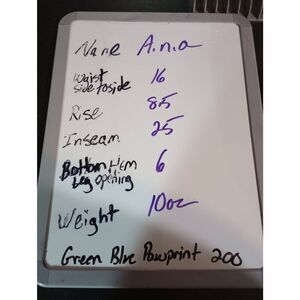 Name A.n.a
Waist
side to side 16
Rise 8.5
Inseam 25
Bottom Hem
Leg opening 6
Weight 10oz
Green Blue Pawprint 200